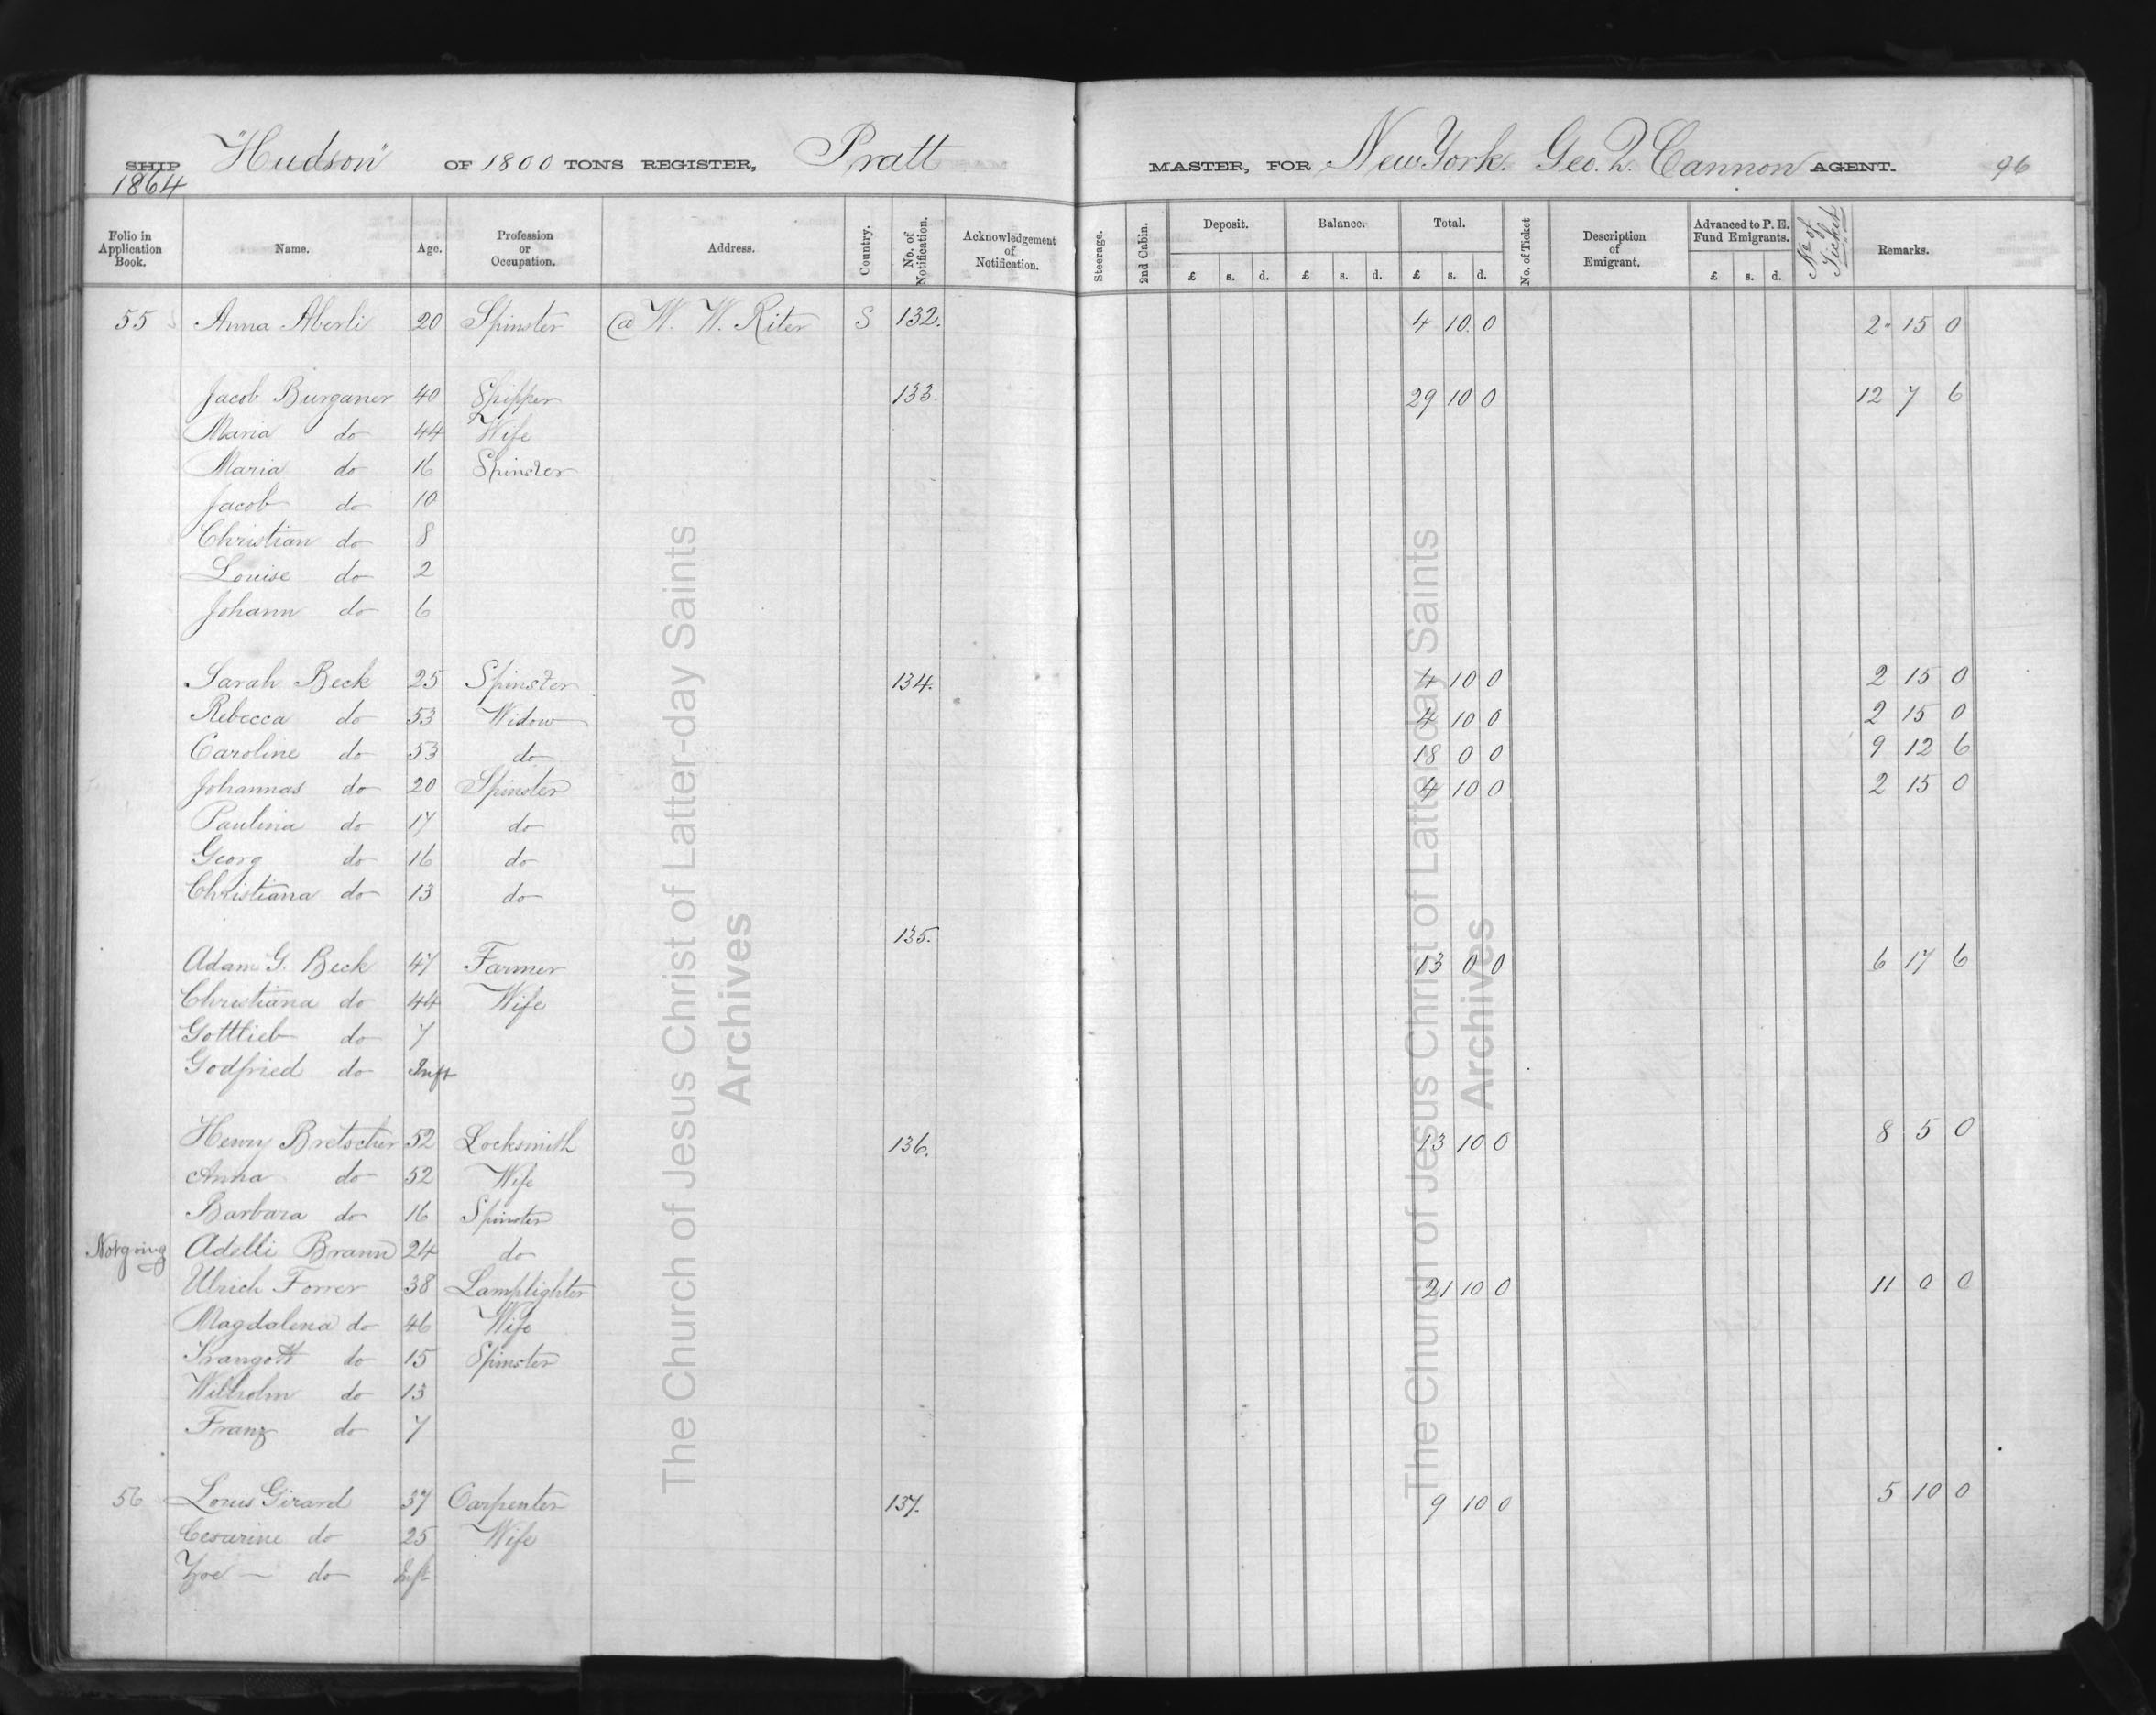 SHIP "Hudson" OF 1800 TONS REGISTER, Pratt MASTER, FOR New York. Geo. Q. Cannon AGENT. 96
1864
Folio in Application Book. Name. Age. Profession or Occupation. Address. Country. No. of Notification. Acknowledgement of Notification. Steerage. 2nd Cabin. Deposit. Balance. Total. No. of Ticket Description of Emigrant. Advanced to P. E. Fund Emigrants. No of Ticket Remarks.
£ s. d. £ s. d. £ s. d. £ s. d.
55 Anna Aberli 20 Spinster @ W. W. Riter S 132. 4 10 0 2 15 0
Jacob Burganer 40 133. 29 10 0 12 7 6
Maria do 44 Wife
Maria do 16 Spinster
Jacob do 10
Christian do 8
Louise do 2
Johann do 6
Sarah Beck 25 Spinster 134. 4 10 0 2 15 0
Rebecca do 53 Widow 4 10 0 2 15 0
Caroline do 53 do 18 0 0 9 12 6
Johannas do 20 Spinster 4 10 0 2 15 0
Paulina do 17 do
Georg do 16 do
Christiana do 13 do
135.
Adam G. Beck 47 Farmer 13 0 0 6 17 6
Christiana do 44 Wife
Gottlieb do 7
Godfried do Inft
Henry Bretscher 52 Locksmith 136. 13 10 0 8 5 0
Anna do 52 Wife
Barbara do 16 Spinster
Not going Adelli Brann 24 do
Ulrich Forrer 38 Lamplighter 21 10 0 11 0 0
Magdalena do 46 Wife
Trangott do 15 Spinster
Wilholm do 13
Franz do 7
56 Louis Girard 37 Carpenter 137. 9 10 0 5 10 0
Cesarine do 25 Wife
Zoe — do Inft
The Church of Jesus Christ of Latter-day Saints
Archives
The Church of Jesus Christ of Latter-day Saints
Archives